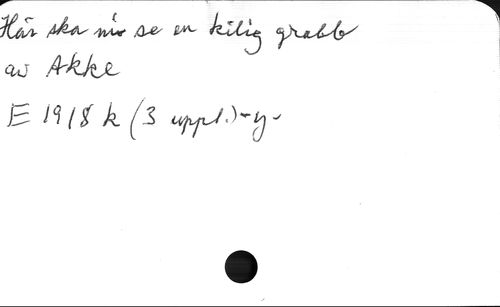 Här ska ni se en kilig grabb
av Akke
E 1918 k (3 uppl.) - y -